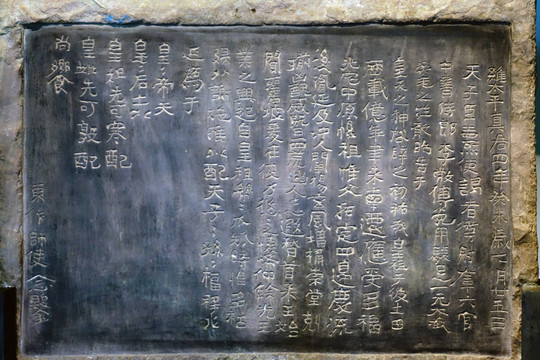 維太平真君四年癸未歲七月廿五日
天子臣燾使謁者僕射庫六官
中書侍郎李敞傅㝹用駿足一元大武
柔毛之牲敢昭告于
皇天之神啟辟之初祐我皇祖于彼土田
歷載億年聿來南遷應受多福
光宅中原惟祖惟父拓定四邊慶流
後胤延及沖人闡揚玄風增構崇堂剋
揃凶醜威暨四荒幽人忘遐稽首來王始
聞舊墟爰在彼方悠悠之懷希仰餘光王
業之興起自皇祖綿綿瓜瓞時惟多祜
歸以謝施推以配天子子孫孫福祿永
延薦于
皇皇帝天
皇皇后土
皇祖先可寒配
皇妣先可敦配
尚饗
東作帥使念鑿